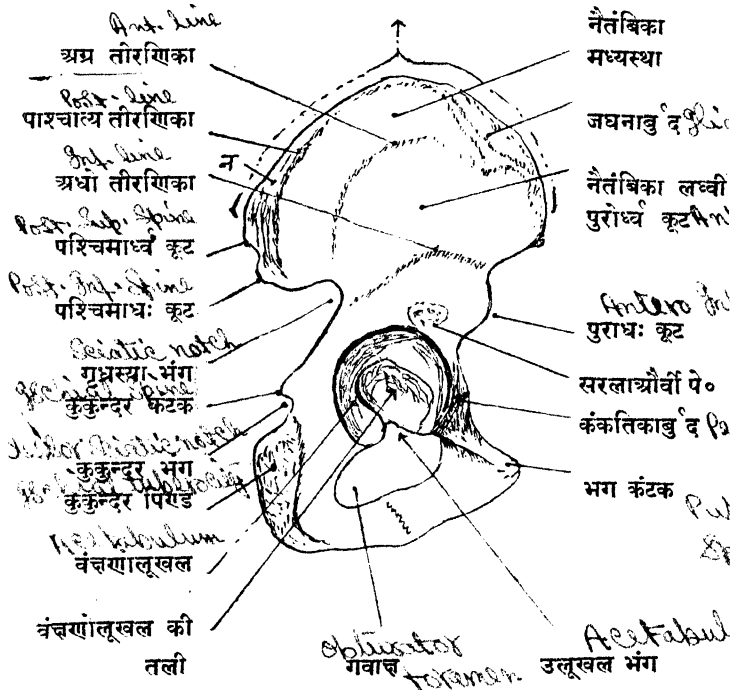 Ant. line
अग्र तीरणिका
Post. line
पाश्चात्य तीरणिका
Inf. line
न
अधो तीरणिका
Post. Sup. Spine
पश्चिमार्ध्व कूट
Post. Inf. Spine
पश्चिमाधः कूट
Sciatic notch
गृध्रस्या भंग
Spine
कुकुन्दर कंटक
Sciatic notch
कुकुन्दर भंग
कुकुन्दर पिण्ड
Acetabulum
वंक्षणालूखल
वंक्षणोलूखल की
तली
नैतंबिका
मध्यस्था
जघनाबुद
नैतंबिका लध्वी
पुरोर्ध्व कूट
Antero
पुराधः कूट
सरलाऔर्वी पे०
कंकतिकाबुद
भग कंटक
obturator
गवाक्ष
foramen
उलूखल भंग